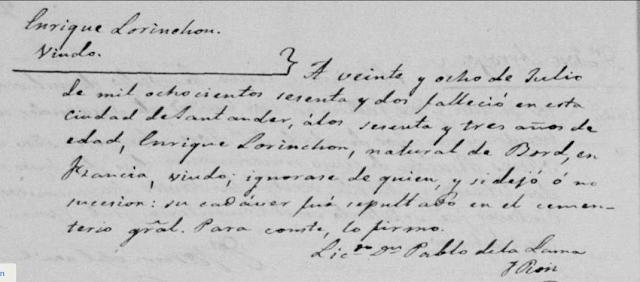 Enrique Lorinchon.
Viudo.
A veinte y ocho de Julio
de mil ochocientos sesenta y dos falleció en esta
ciudad de Santander, á los sesenta y tres años de
edad, Enrique Lorinchon, natural de Bord, en
Francia, viudo; ignorase de quien, y si dejó ó no
sucesion: su cadáver fué sepultado en el cemen-
terio gral. Para conste, lo firmo.
Licdo Dn Pablo de la Lama